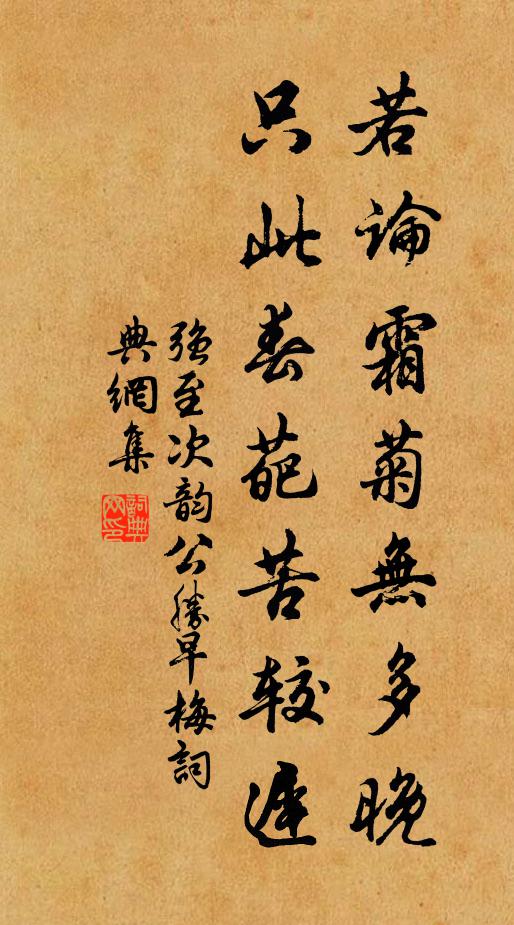 若論霜菊無多晚
只此春葩苦較遲
強至次韵公勝早梅詞
典網集
詞典網印